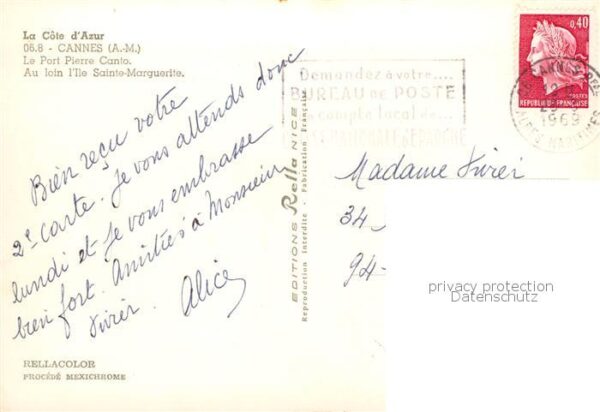 La Côte d'Azur
06.8 - CANNES (A.-M.)
Le Port Pierre Canto.
Au loin l'Ile Sainte-Marguerite.
Bien reçu votre
2e carte. Je vous attends donc
lundi et je vous embrasse
bien fort. Amitiés à Monsieur
Alice
RELLACOLOR
PROCÉDÉ MEXICHROME
EDITIONS Rella NICE
Reproduction Interdite - Fabrication Française
Demandez à votre....
BUREAU DE POSTE
le compte local de...
D'EPARGNE
0,40
POSTES
REPUBLIQUE FRANÇAISE
1969
ALPES MARITIMES
Madame
34-
94-
privacy protection
Datenschutz